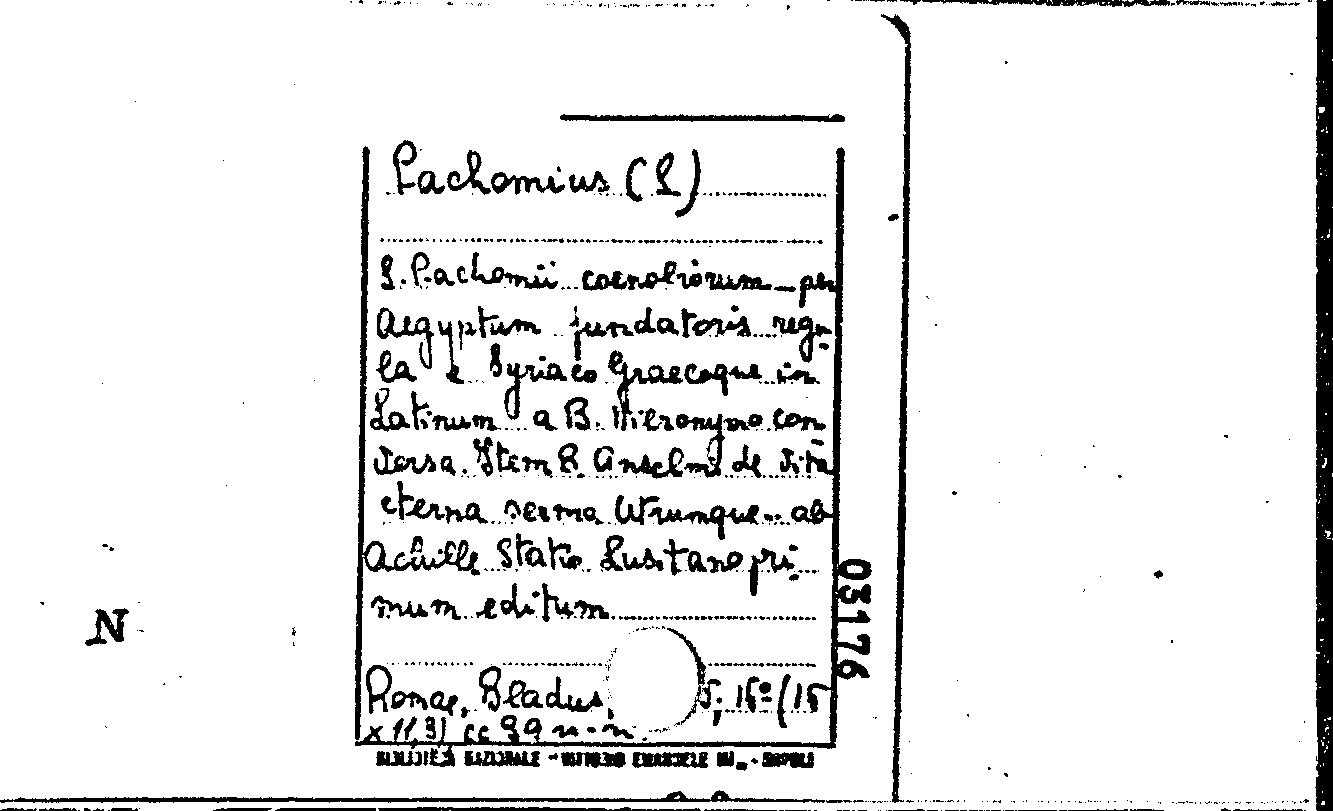 Pachomius (S)
S. Pachomii coenobiorum per
Aegyptum fundatoris regu-
la e Syriaco Graecoque in
Latinum a B. Hieronymo con
versa. Item B. Anselmi de vita
eterna sermo Utrumque ab
Achille Statio Lusitano pri-
mum editum
N
03176
Romae, Bladus, 5; 16º (15
x 11,3) cc 39 n-n.
BIBLIOTECA NAZIONALE - VITTORIO EMANUELE III - NAPOLI